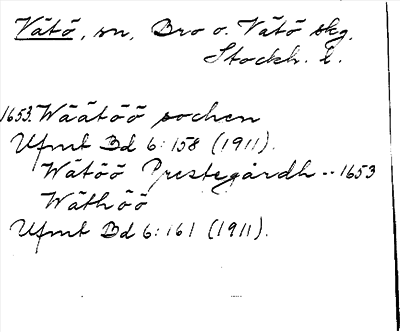 Vätö, sn, Bro o. Vätö skg.
Stockh. l.
1653. Wäätöö sochen
Ufmt Bd 6: 158 (1911).
Wätöö Prestegårdh -- 1653
Wäthöö
Ufmt Bd 6: 161 (1911).